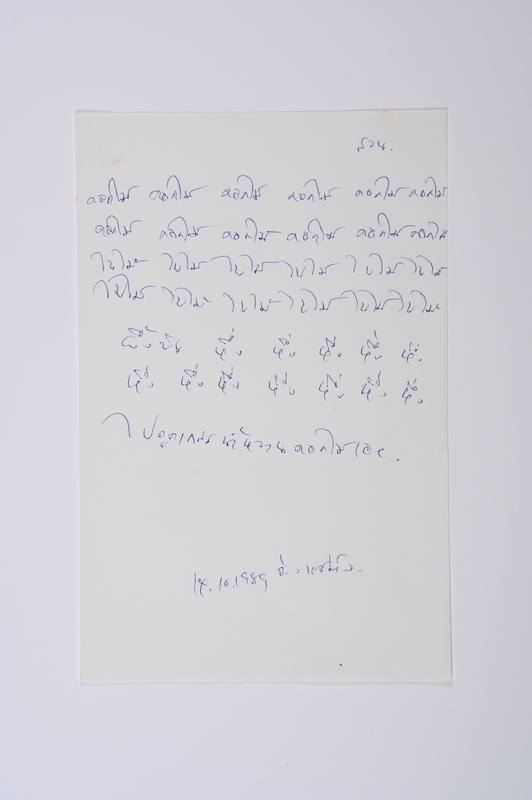 สวน.
ดอกไม้ ดอกไม้ ดอกไม้ ดอกไม้ ดอกไม้ ดอกไม้
ดอกไม้ ดอกไม้ ดอกไม้ ดอกไม้ ดอกไม้ ดอกไม้
ใบไม้ ใบไม้ ใบไม้ ใบไม้ ใบไม้ ใบไม้
ใบไม้ ใบไม้ ใบไม้ ใบไม้ ใบไม้ ใบไม้
ผึ้งบิน หึ่ง หึ่ง หึ่ง หึ่ง หึ่ง
หึ่ง หึ่ง หึ่ง หึ่ง หึ่ง หึ่ง หึ่ง
ไปดูดเกสร น้ำหวาน ดอกไม้เอย.
14.10.1989